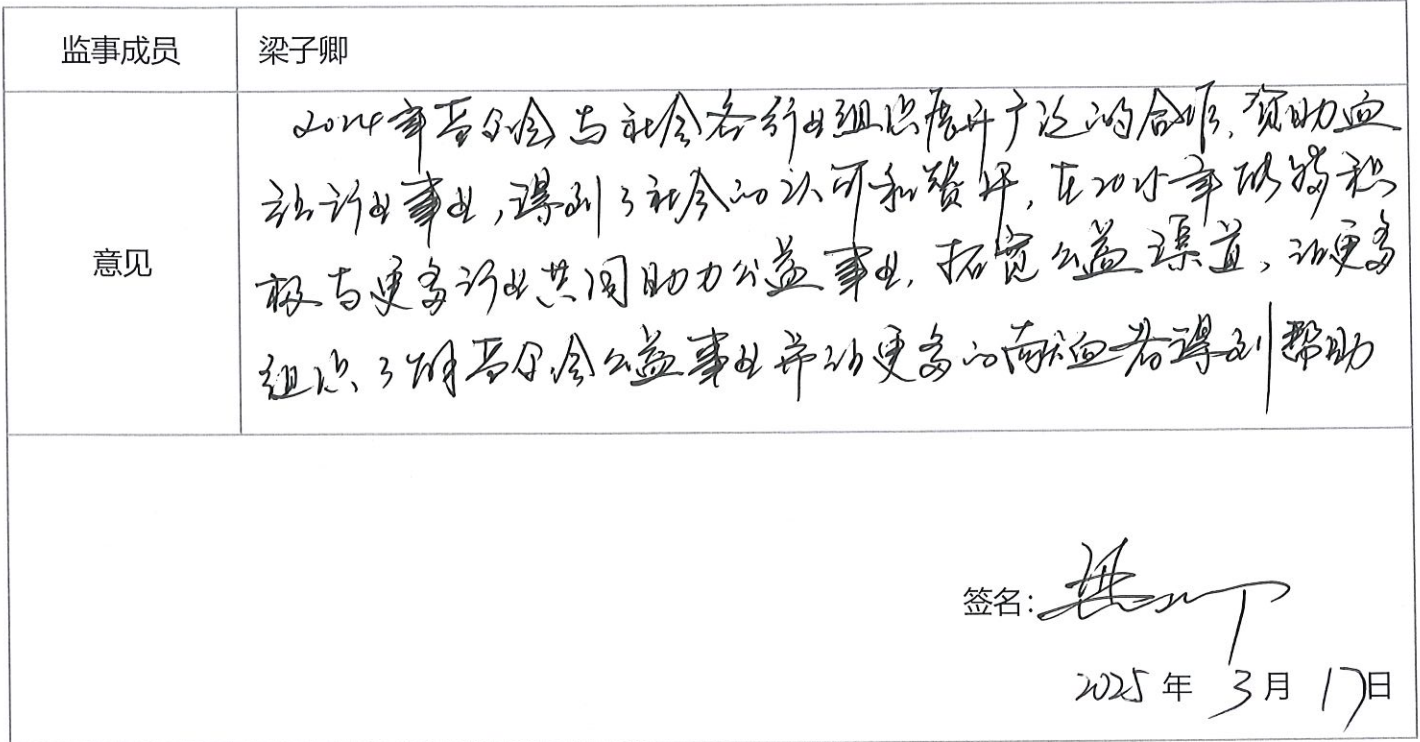 监事成员 梁子卿
意见
2024年基金会与社会各行业组织展开广泛的合作、资助血
行业事业,得到了社会的认可和赞许,在2025年继续积
极与更多行业共同助力公益事业,拓宽公益渠道、让更多
组织了解基金会公益事业并让更多的献血者得到帮助
签名:
2025年 3月 17日